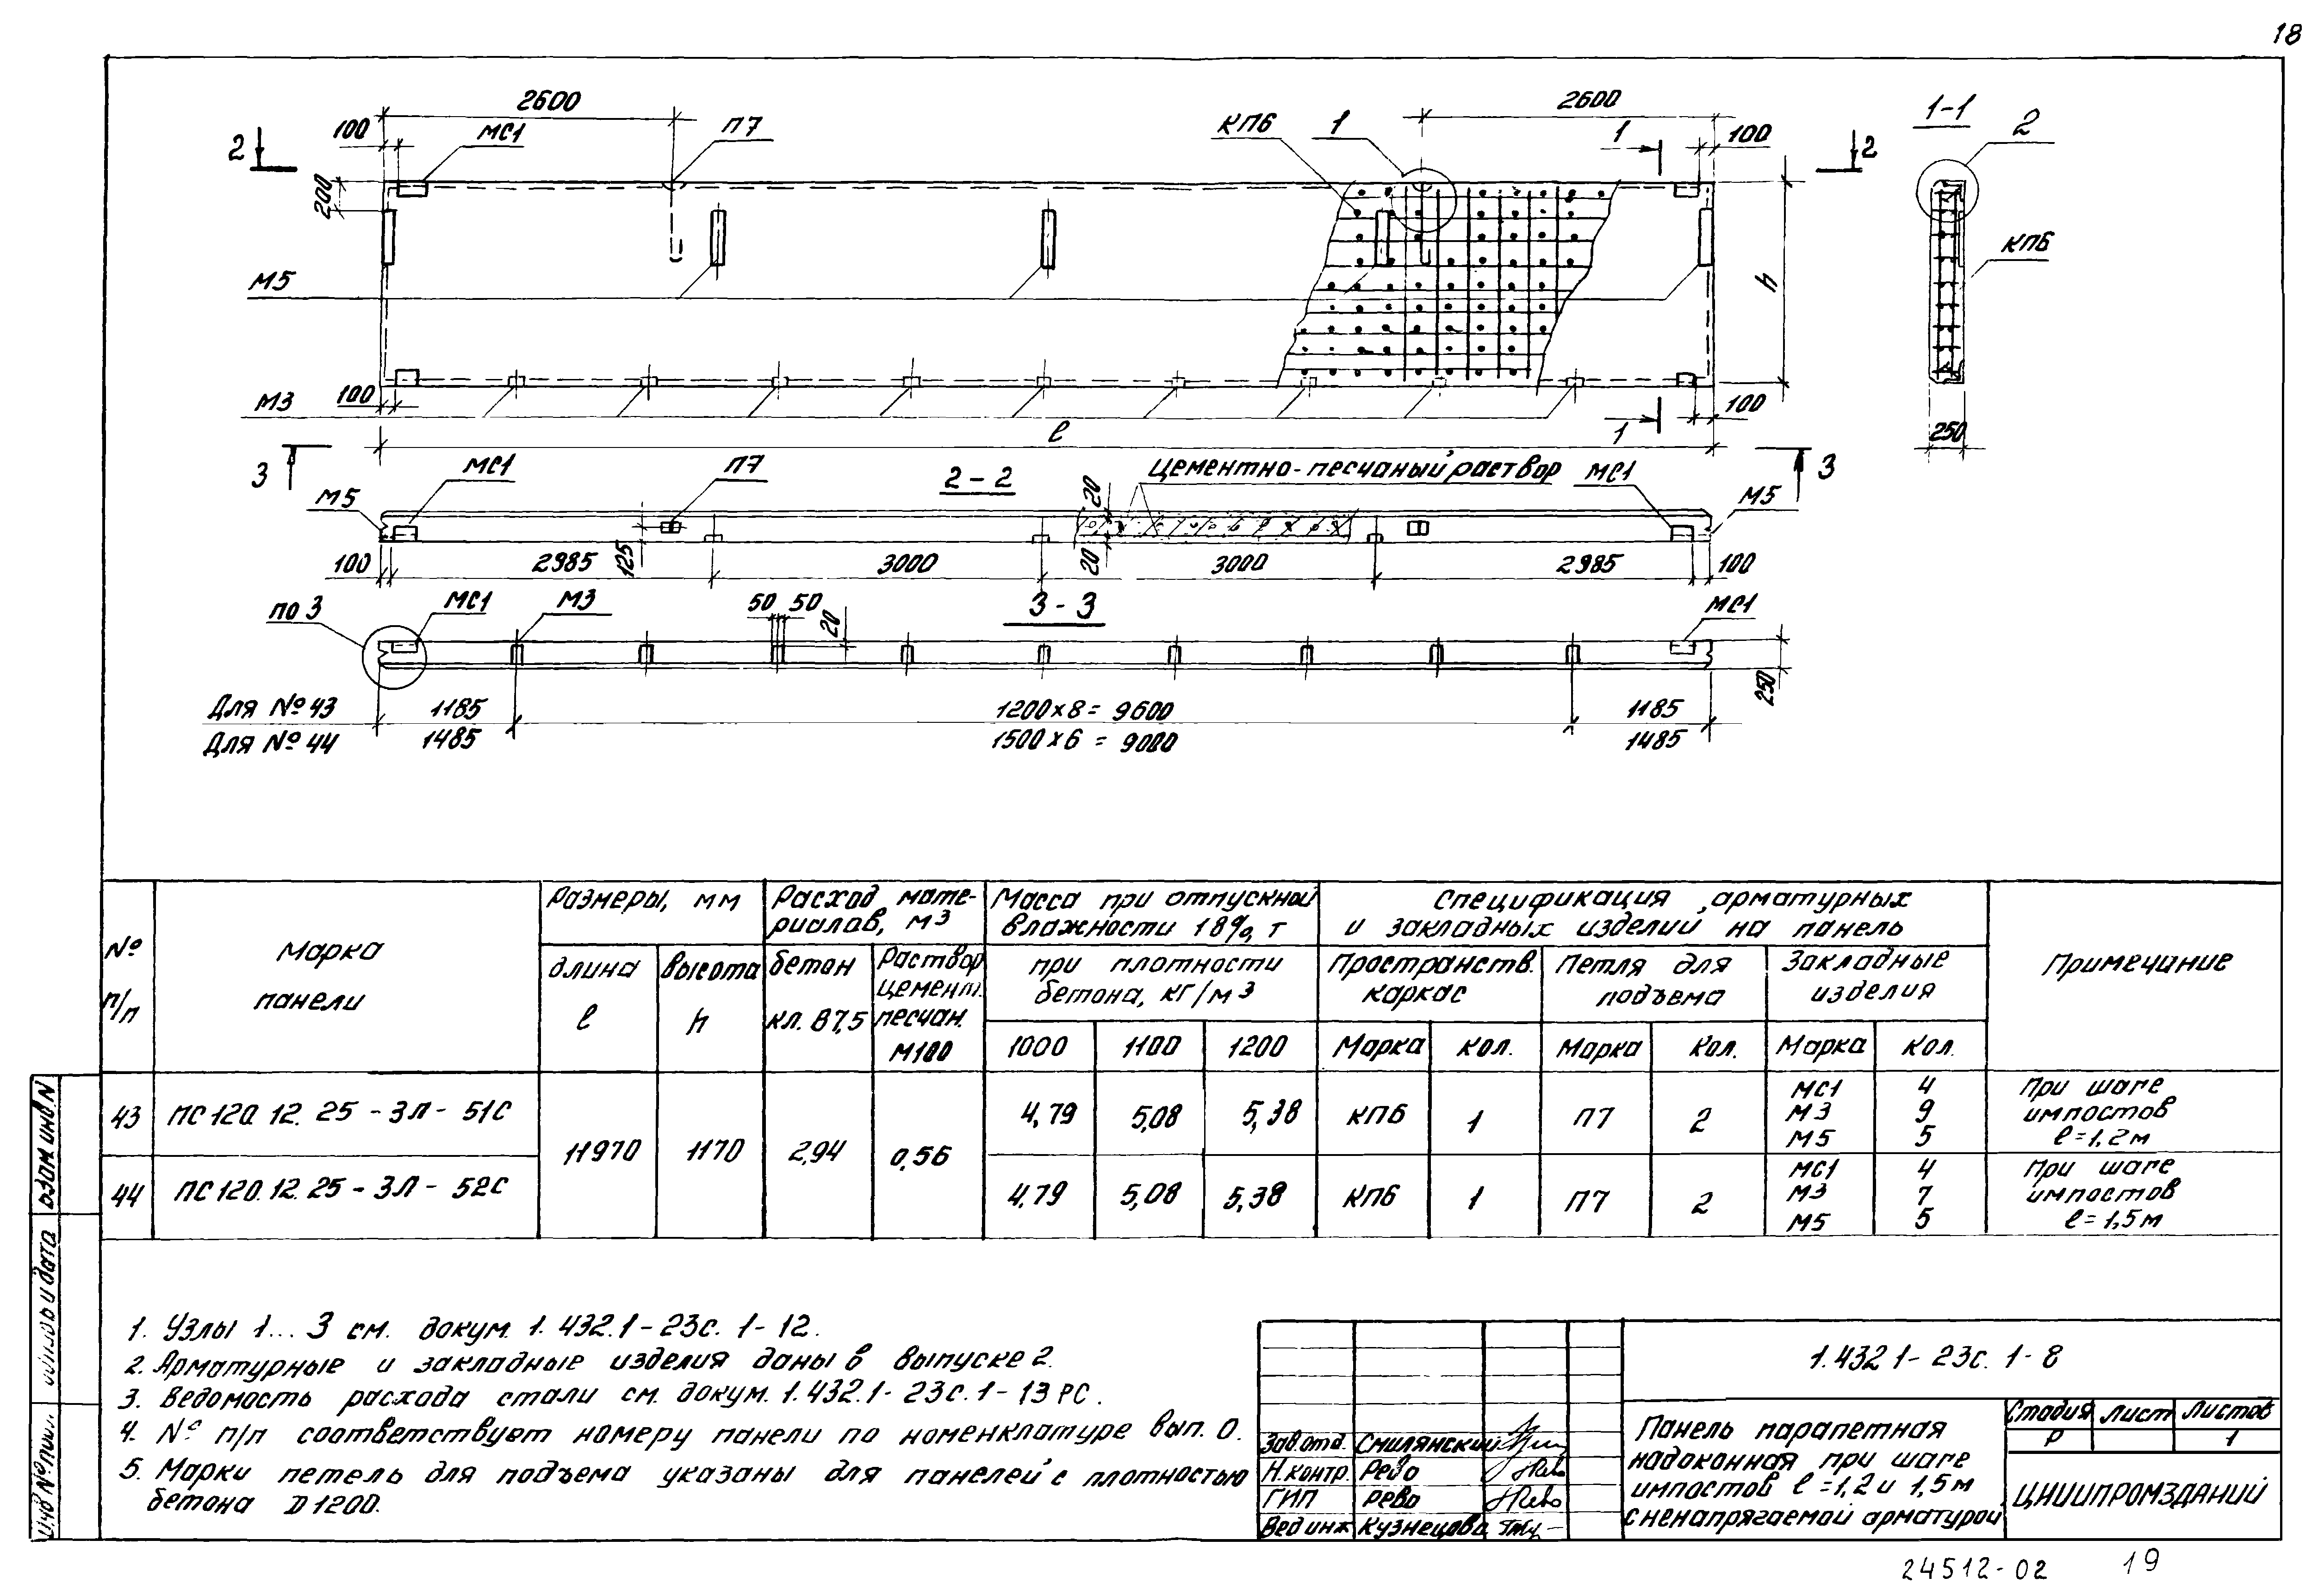 18
2600
2600
1-1
2
100
МС1
П7
КП6
1
1
100
2
2
200
КП6
М5
h
М3
100
100
250
1
ℓ
3
МС1
П7
2-2
Цементно-песчаный раствор
МС1
3
М5
20
М5
100
2985
125
3000
20
3000
2985
100
по 3
МС1
М3
50
50
20
3-3
МС1
250
Для № 43
1185
1200×8=9600
1185
Для № 44
1485
1500×6=9000
1485
№ п/п
Марка панели
Размеры, мм
Расход материалов, м3
Масса при отпускной влажности 18%, т
Спецификация арматурных и закладных изделий на панель
Примечание
длина ℓ
высота h
бетон кл. В7,5
Раствор цемент. песчан. М100
при плотности бетона, кг/м3
Пространств. каркас
Петля для подъема
Закладные изделия
1000
1100
1200
Марка
кол.
Марка
Кол.
Марка
Кол.
43
ПС 120. 12. 25 - 3Л - 51С
11970
1170
2,94
0,56
4,79
5,08
5,38
КП6
1
П7
2
МС1 4
М3 9
М5 5
При шаге импостов ℓ=1,2м
44
ПС 120. 12. 25 - 3Л - 52С
4,79
5,08
5,38
КП6
1
П7
2
МС1 4
М3 7
М5 5
При шаге импостов ℓ=1,5м
1. Узлы 1... 3 см. докум. 1. 432.1-23с. 1-12.
2. Арматурные и закладные изделия даны в выпуске 2.
3. Ведомость расхода стали см. докум. 1.432.1-23с.1-13 РС.
4. № п/п соответствует номеру панели по номенклатуре вып. 0.
5. Марки петель для подъема указаны для панелей с плотностью
бетона D 1200.
1.432 1-23с. 1-8
Зав.отд. Смилянский
Н.контр. Рево
ГИП Рево
Вед инж Кузнецова
Панель парапетная
надоконная при шаге
импостов ℓ=1,2 и 1,5м
с ненапрягаемой арматурой
Стадия Лист Листов
Р 1
ЦНИИПРОМЗДАНИЙ
Взам инв. N
и дата
Инв № подл.
24512-02
19